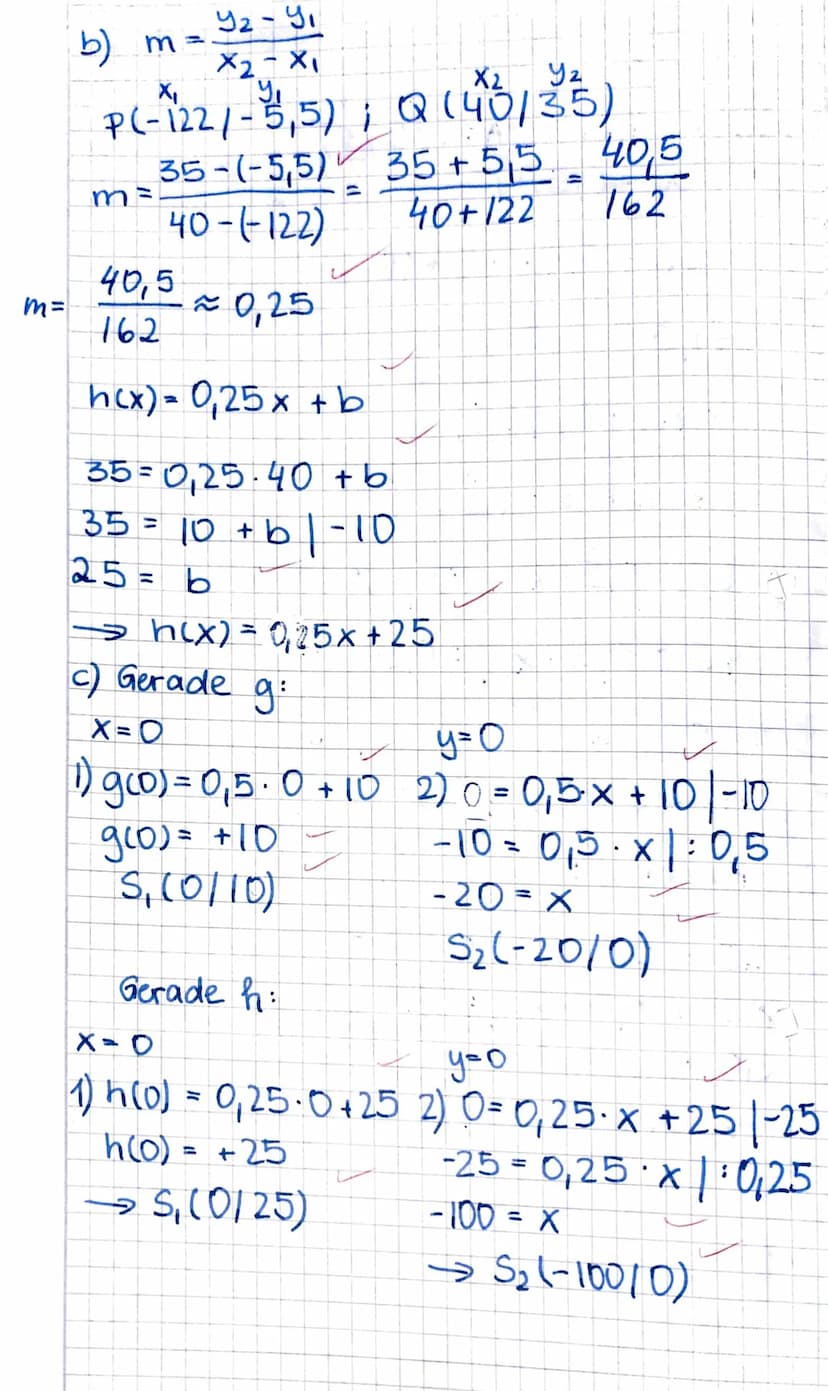 b) m = (y₂ - y₁)/(x₂ - x₁)
x₁ y₁ x₂ y₂
P(-122/-5,5) ; Q(40/35)
m = (35-(-5,5))/(40-(-122)) = (35+5,5)/(40+122) = 40,5/162
m = 40,5/162 ≈ 0,25
h(x) = 0,25x + b
35 = 0,25·40 + b
35 = 10 + b | -10
25 = b
→ h(x) = 0,25x + 25
c) Gerade g:
x = 0
1) g(0) = 0,5·0 + 10
g(0) = +10
S₁(0/10)
y = 0
2) 0 = 0,5·x + 10 | -10
-10 = 0,5·x | : 0,5
-20 = x
S₂(-20/0)
Gerade h:
x = 0
1) h(0) = 0,25·0 + 25
h(0) = +25
→ S₁(0/25)
y = 0
2) 0 = 0,25·x + 25 | -25
-25 = 0,25·x | : 0,25
-100 = x
→ S₂(-100/0)